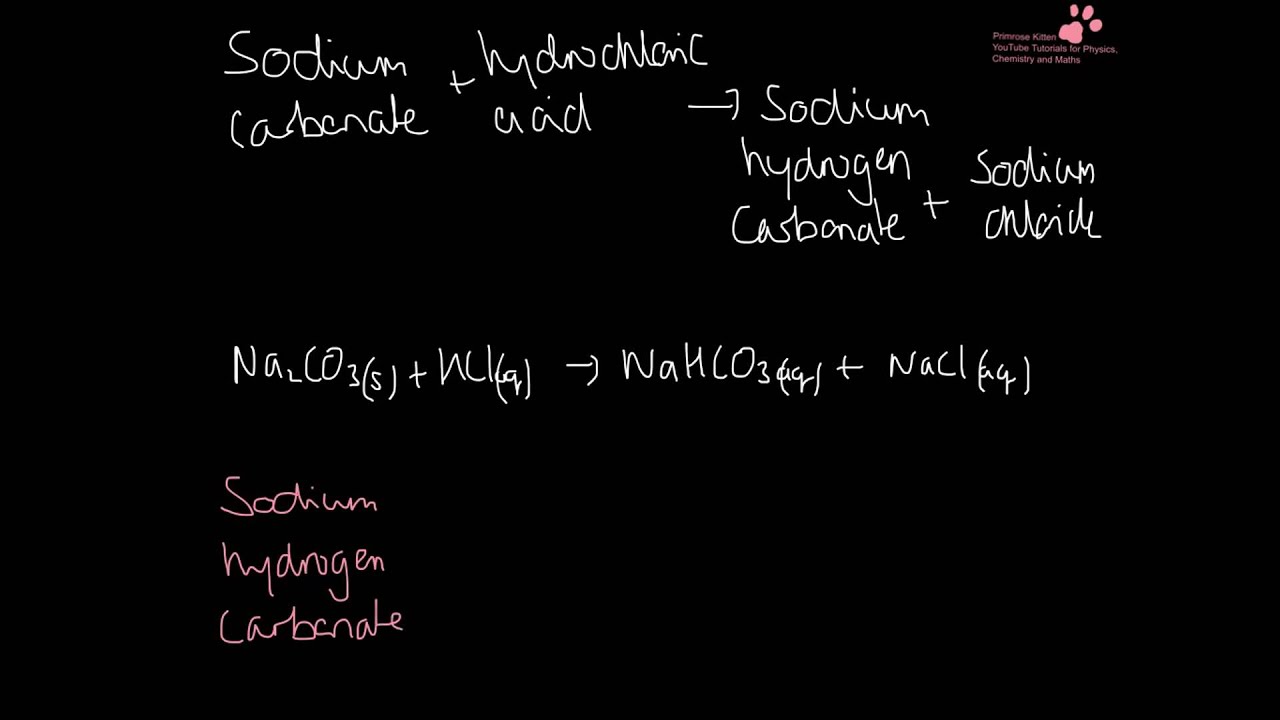 Primrose Kitten
YouTube Tutorials for Physics,
Chemistry and Maths
Sodium + hydrochloric
carbonate acid → Sodium
hydrogen + Sodium
Carbonate chloride
Na₂CO₃(s) + HCl(aq) → NaHCO₃(aq) + NaCl(aq)
Sodium
hydrogen
Carbonate